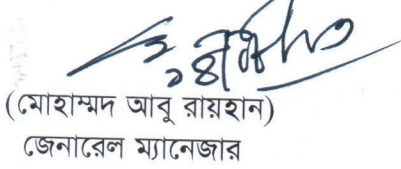 (মোহাম্মদ আবু রায়হান)
জেনারেল ম্যানেজার